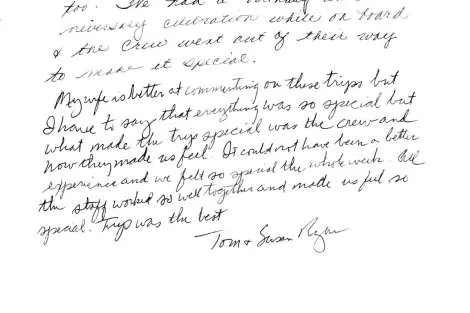 too. I've had a
niversary celebration while on board
& the Crew went out of their way
to make it special.
My wife is better at commenting on these trips but
I have to say that everything was so special but
what made the trip special was the crew and
how they made us feel. It could not have been a better
experience and we felt so special the whole week. All
the staff worked so well together and made us feel so
special. Trip was the best
Tom & Susan Ryan